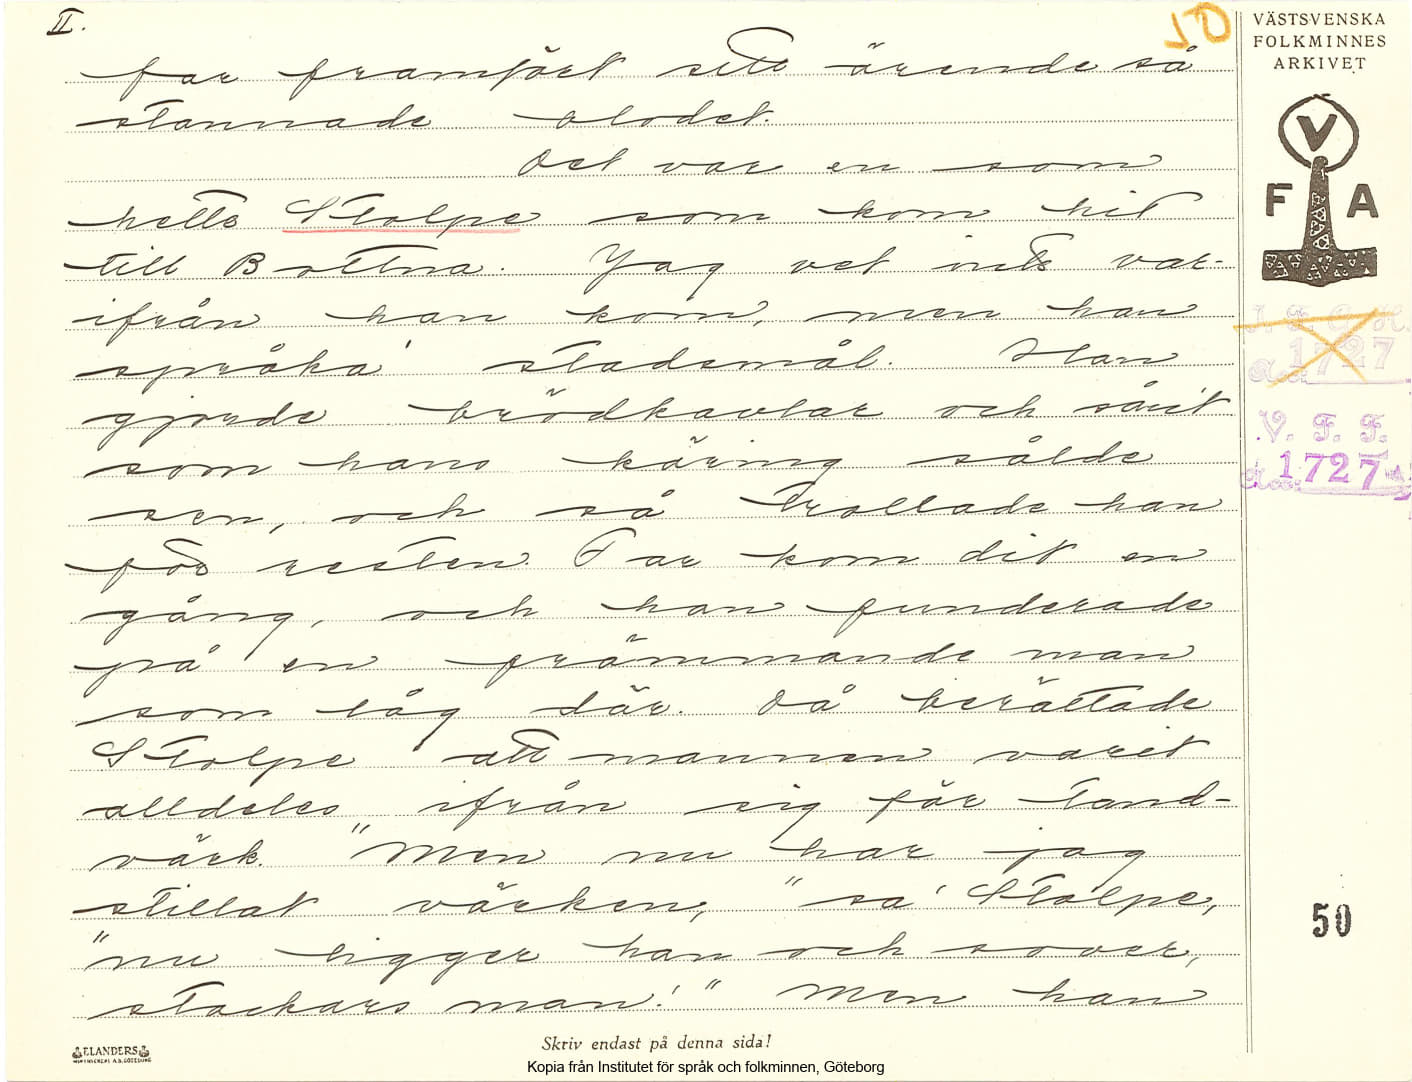 II.
50
far framfört sitt ärende så
stannade blodet.
Det var en som
hette Stolpe som kom hit
till Bottna. Jag vet inte var-
ifrån han kom, men han
språka' stadsmål. Han
gjorde brödkavlar och sånt
som hans käring sålde
sen, och så trollade han
för resten. Far kom dit en
gång, och han funderade
på en främmande man
som låg där. Då berättade
Stolpe att mannen varit
alldeles ifrån sig för tand-
värk. "Men nu har jag
stillat värken," sa' Stolpe,
"nu ligger han och sover,
stackars man!" Men han
VÄSTSVENSKA
FOLKMINNES
ARKIVET
V
F A
1727
V. F. F.
Acc. 1727
50
ELANDERS
Skriv endast på denna sida!
Kopia från Institutet för språk och folkminnen, Göteborg